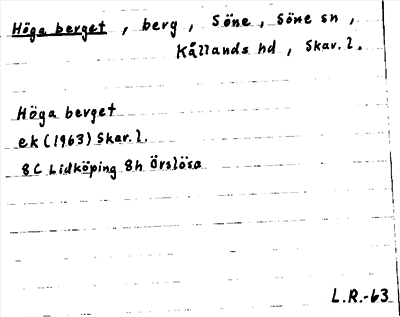 Höga berget, berg, Söne, Söne sn,
Kållands hd, Skar.l.
Höga berget
ek (1963) Skar.l.
8C Lidköping 8h Örslösa
L.R.-63